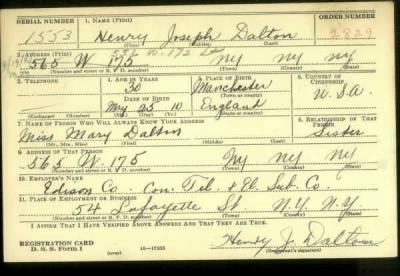 SERIAL NUMBER 1. NAME (Print) ORDER NUMBER
1553 Henry Joseph Dalton 2829
(First) (Middle) (Last)
2. ADDRESS (Print) 572 W. 172 St
565 W 175 NY NY NY
(Number and street or R. F. D. number) (Town) (County) (State)
3. TELEPHONE 4. AGE IN YEARS 5. PLACE OF BIRTH 6. COUNTRY OF CITIZENSHIP
30 Manchester
DATE OF BIRTH (Town or county) U.S.A
May 25 10 England
(Exchange) (Number) (Mo.) (Day) (Yr.) (State or country)
7. NAME OF PERSON WHO WILL ALWAYS KNOW YOUR ADDRESS 8. RELATIONSHIP OF THAT PERSON
Miss Mary Dalton Sister
(Mr., Mrs., Miss) (First) (Middle) (Last)
9. ADDRESS OF THAT PERSON
565 W. 175 NY NY NY
(Number and street or R. F. D. number) (Town) (County) (State)
10. EMPLOYER'S NAME
Edison Co. Con. Tel. & El. Sub. Co.
11. PLACE OF EMPLOYMENT OR BUSINESS
54 Lafayette St. N.Y. N.Y.
(Number and street or R. F. D. number) (Town) (County) (State)
I AFFIRM THAT I HAVE VERIFIED ABOVE ANSWERS AND THAT THEY ARE TRUE.
REGISTRATION CARD
D. S. S. Form 1 (over) 16—17105 Henry J. Dalton
(Registrant's signature)